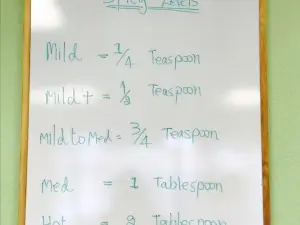 Spicy Levels
Mild = 1/4 Teaspoon
Mild + = 1/2 Teaspoon
Mild to Med = 3/4 Teaspoon
Med = 1 Tablespoon
Hot = 2 Tablespoon